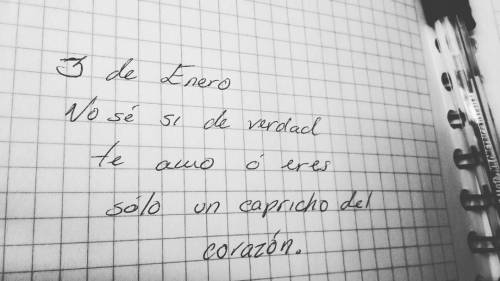 3 de Enero
No sé si de verdad
te amo ó eres
sólo un capricho del
corazón.